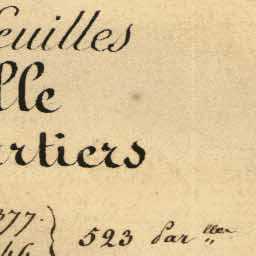 feuilles
lle
rtiers
377.
46
523 Par^lles